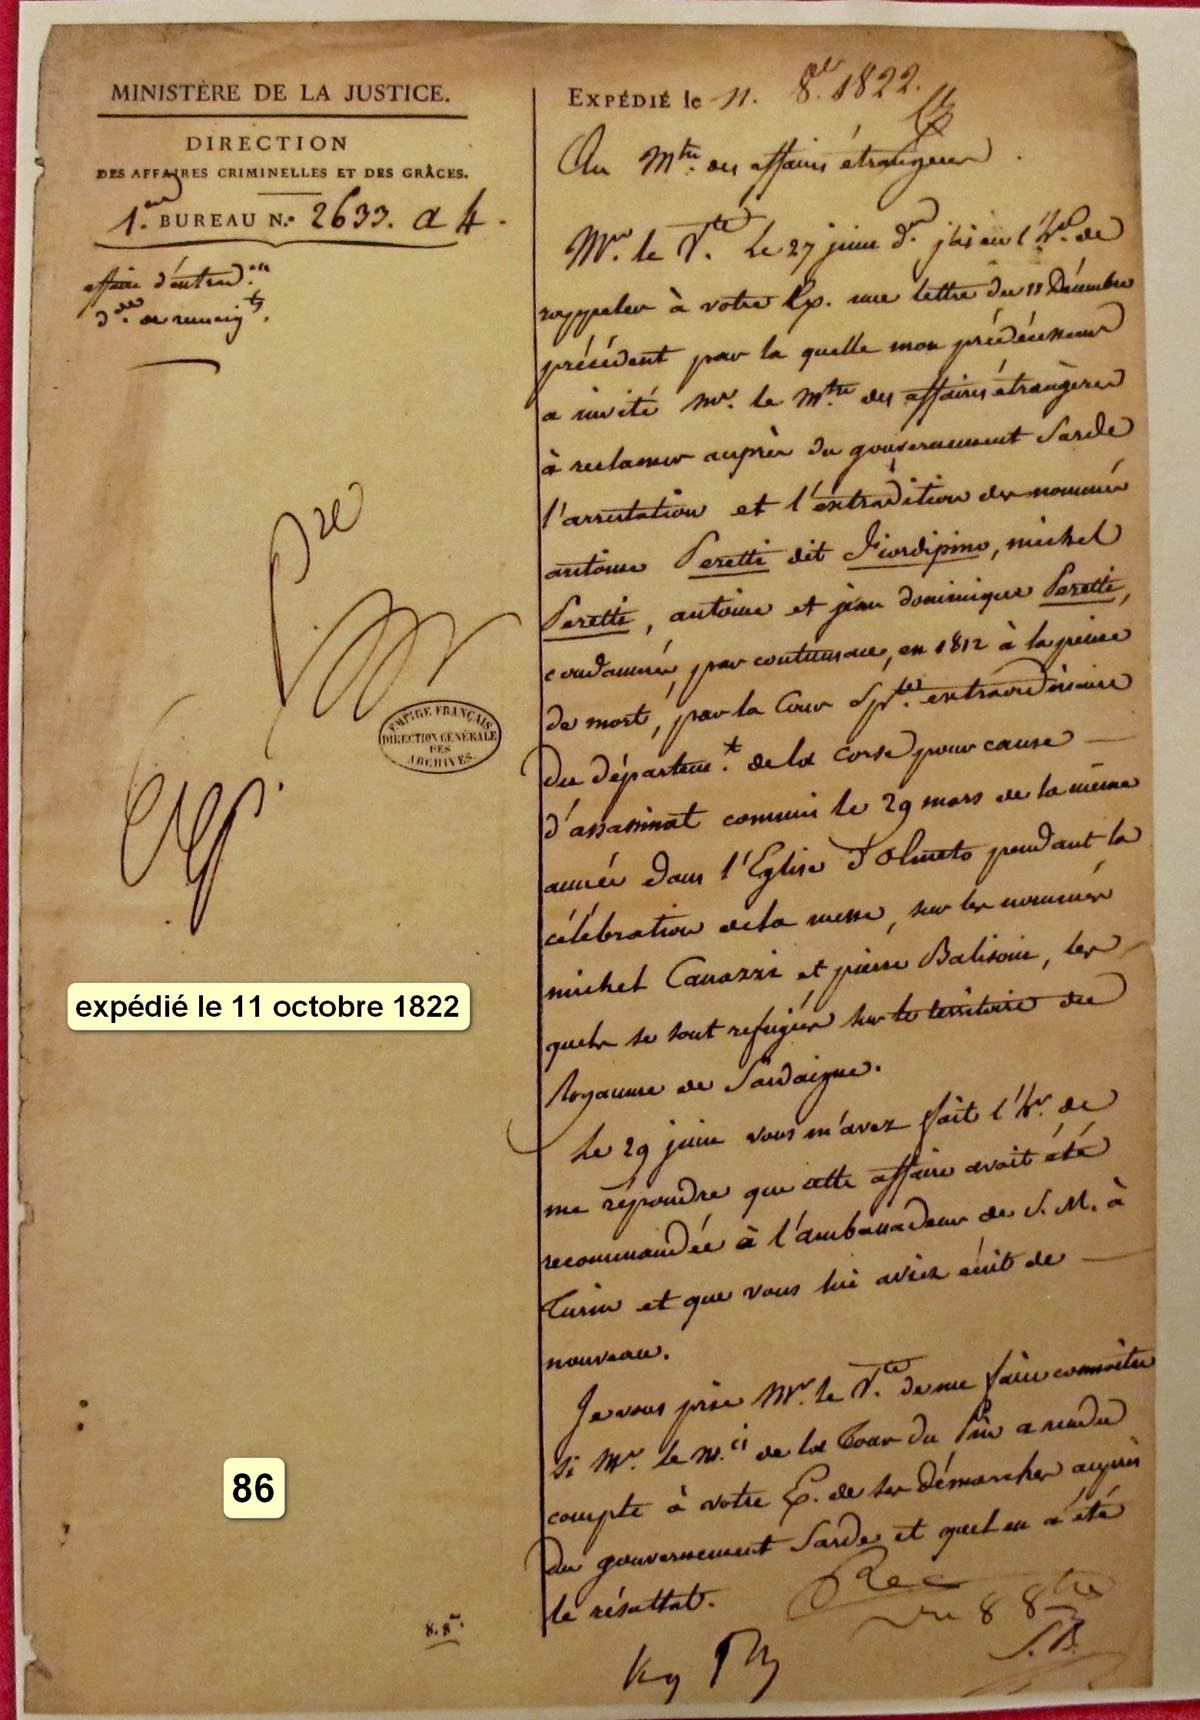 MINISTÈRE DE LA JUSTICE.
DIRECTION
DES AFFAIRES CRIMINELLES ET DES GRÂCES.
1.er BUREAU N.º 2633. a 4.
affaire d'extrad.on
Expédié le 11. 8.bre 1822.
Au Mtre. des affaires étrangères.
Mr. le Vte. Le 27 juin der. j'ai eu l'hr. de
rappeler à votre Ex. une lettre du 11 Décembre
précédent par la quelle mon prédécesseur
a invité Mr. le Mtre. des affaires étrangères
à reclamer auprès du gouvernement Sarde
l'arrestation et l'extradition des nommés
antoine Peretti dit Fiordipino, michel
Peretti, antoine et jean dominique Peretti,
condamnés, par contumace, en 1812 à la peine
de mort, par la Cour Sple. extraordinaire
du départem.t de la Corse pour cause
d'assassinat commis le 29 mars de la même
année dans l'Eglise d'Olmeto pendant la
célébration de la messe, sur les nommés
michel Canazzi et pierre Balisoni, les
quels se sont refugiés sur le territoire du
Royaume de Sardaigne.
Le 29 juin vous m'avez fait l'hr. de
me répondre que cette affaire avait été
recommandée à l'ambassadeur de S. M. à
Turin et que vous lui aviez écrit de
nouveau.
Je vous prie Mr. le Vte. de me faire connoitre
si Mr. le M.is de la Tour du Pin a rendu
compte à votre Ex. de ses démarches auprès
du gouvernement Sarde et quel en a été
le résultat.
EMPIRE FRANÇAIS
DIRECTION GÉNÉRALE
DES
ARCHIVES.
expédié le 11 octobre 1822
86
8. 8bre.
du 8 8bre